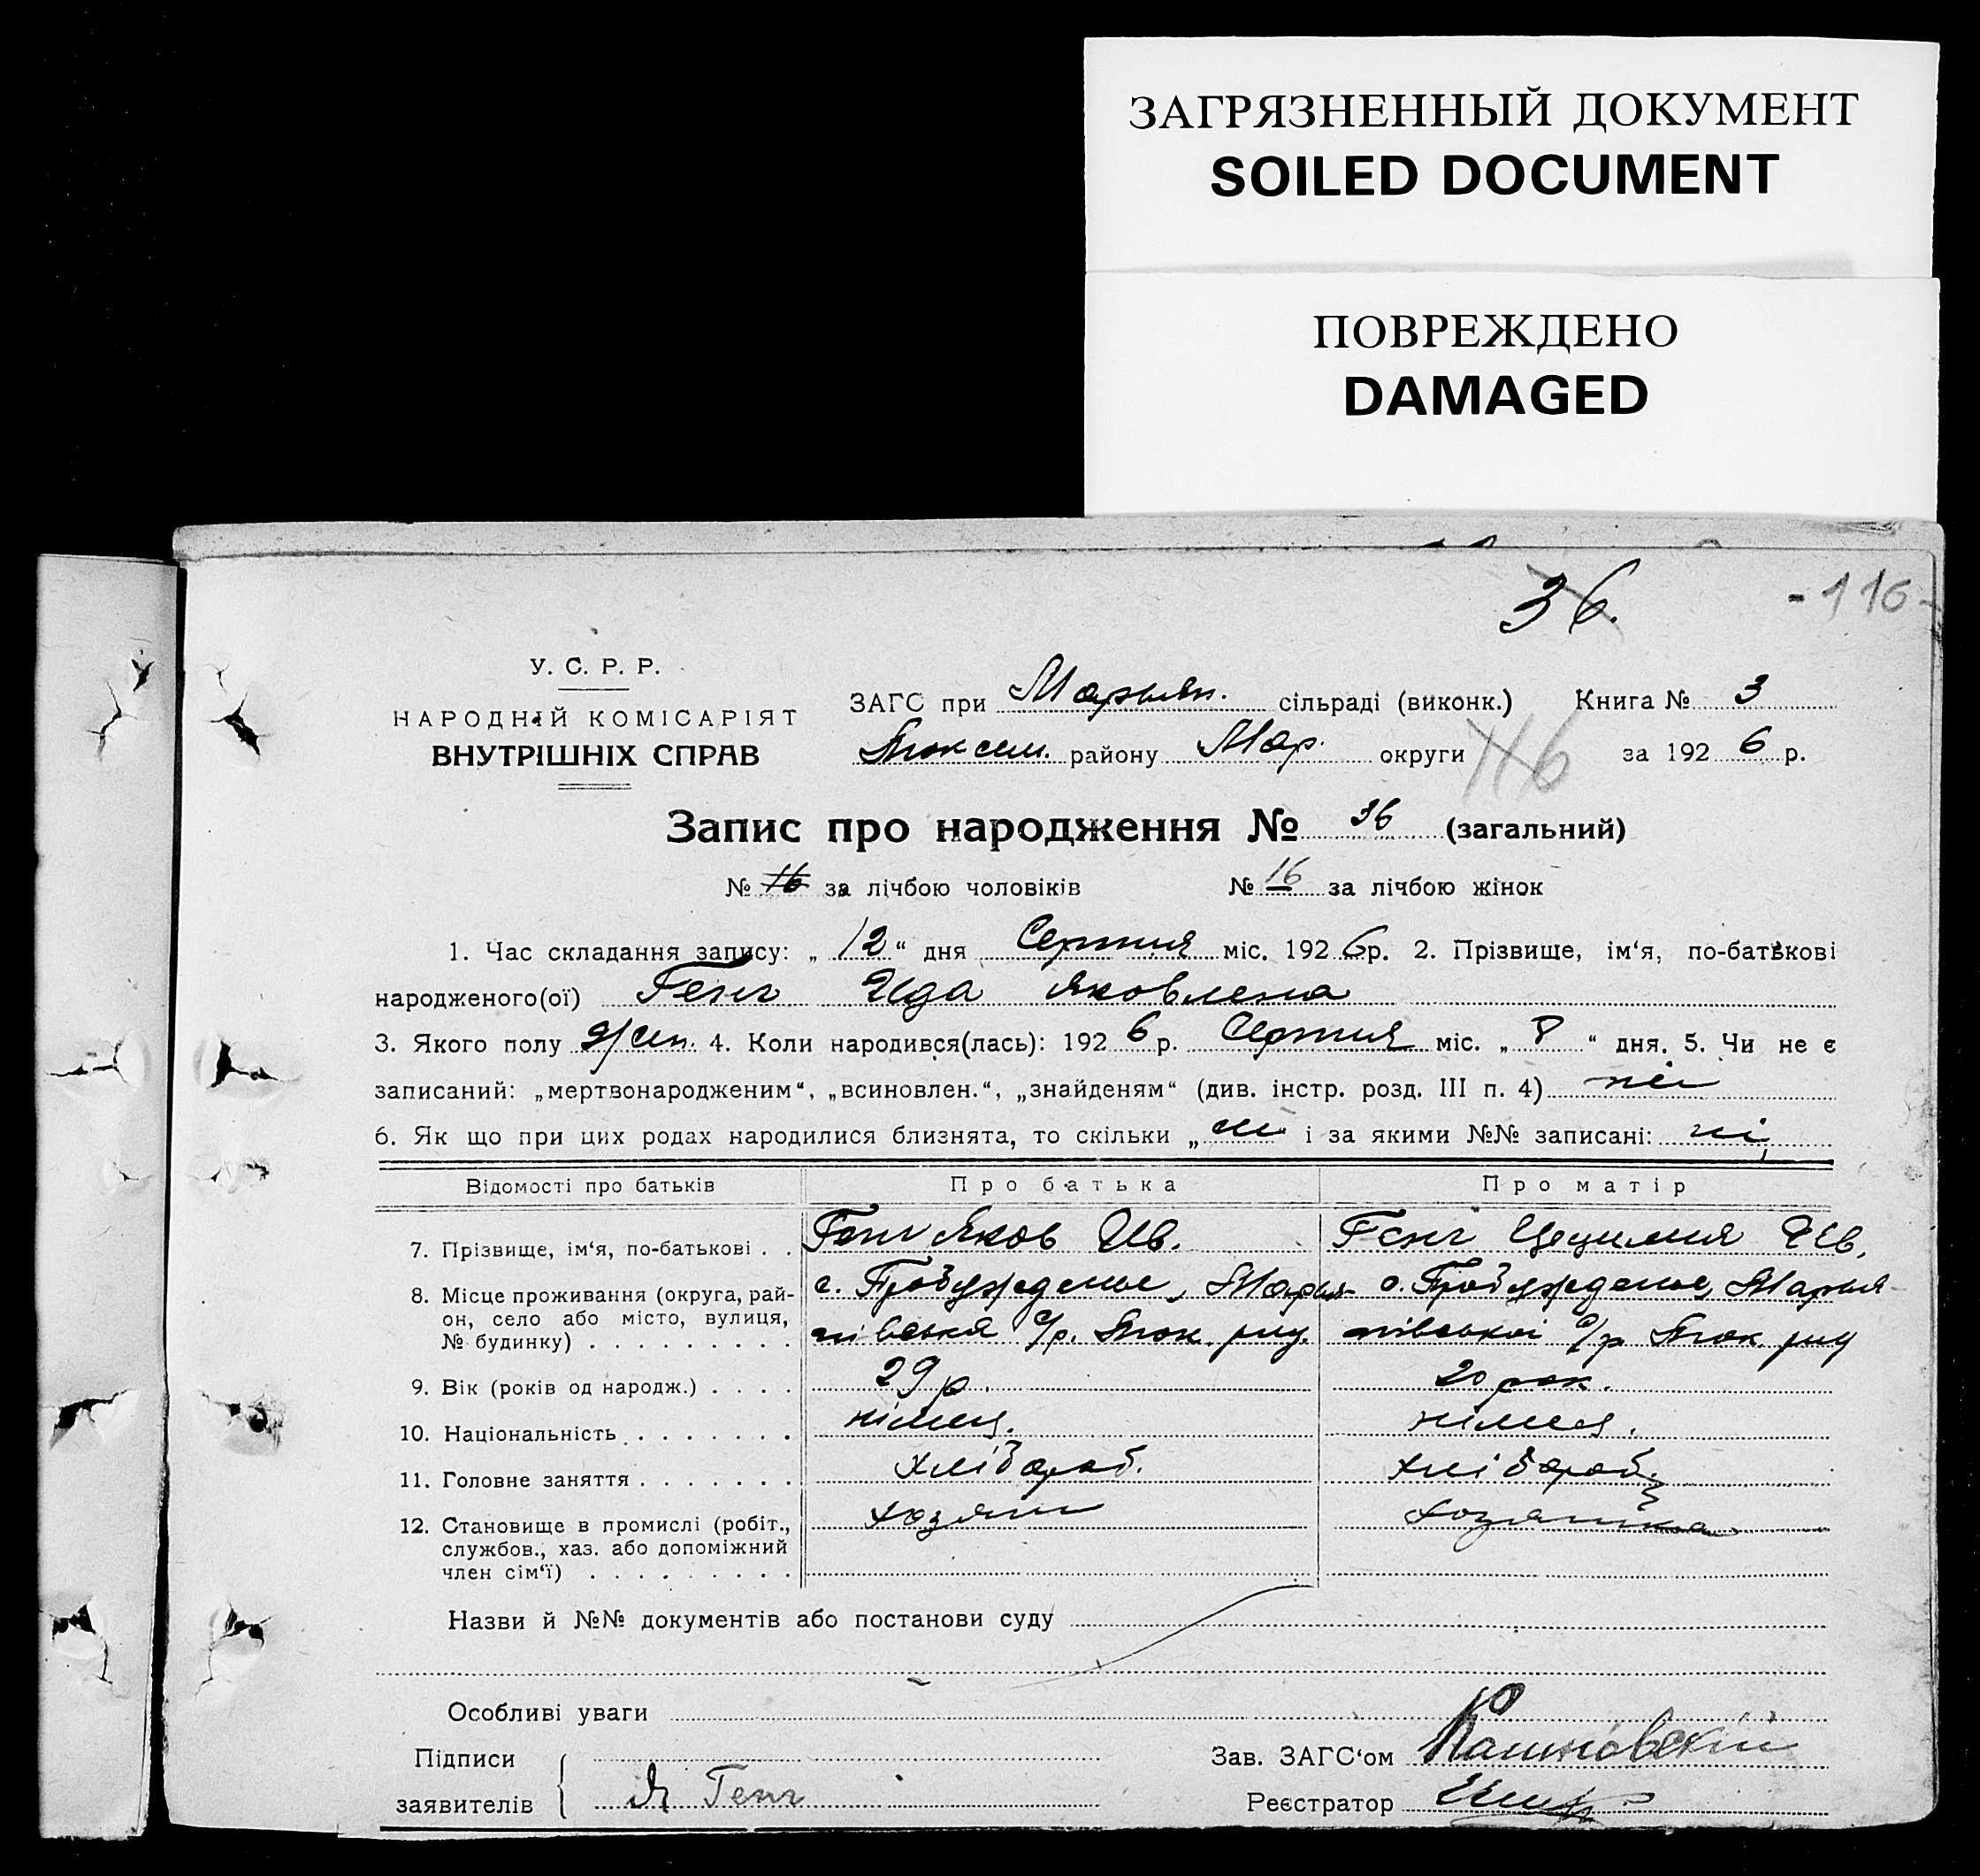 ЗАГРЯЗНЕННЫЙ ДОКУМЕНТ
SOILED DOCUMENT
ПОВРЕЖДЕНО
DAMAGED
36. - 116 -
У. С. Р. Р.
НАРОДНІЙ КОМІСАРІЯТ
ВНУТРІШНІХ СПРАВ
ЗАГС при Марьян. сільраді (виконк.) Книга № 3
району Мар. округи 116 за 1926 р.
Запис про народження № 36 (загальний)
№ 16 за лічбою чоловіків № 16 за лічбою жінок
1. Час складання запису: „ 12 “ дня Серпня міс. 1926 р. 2. Прізвище, ім‘я, по-батькові
народженого(ої) Генг Ида Яковлевна
3. Якого полу жен. 4. Коли народився(лась): 1926 р. Серпня міс. „ 8 “ дня. 5. Чи не є
записаний: „мертвонародженим“, „всиновлен.“, „знайденям“ (див. інстр. розд. III п. 4) ні
6. Як що при цих родах народилися близнята, то скільки „ і за якими №№ записані: ні
Відомості про батьків Про батька Про матір
7. Прізвище, ім‘я, по-батькові . . Генг Яков Ив. Генг Цецилия Ив.
8. Місце проживання (округа, рай- с. Пробуждение, Марья- с. Пробуждение, Марья-
он, село або місто, вулиця,
№ будинку) . . . . . . . . . нівська с/р. нівської с/р
9. Вік (років од народж.) . . . . 29 р. 20 рок.
10. Національність . . . . . . . німец. німец.
11. Головне заняття . . . . . . . хлібороб. хлібороб.
12. Становище в промислі (робіт., хозяин хозяйка
службов., хаз. або допоміжний
член сім‘ї) . . . . . . . . .
Назви й №№ документів або постанови суду
Особливі уваги
Підписи
заявителів Я Генг
Зав. ЗАГС‘ом
Реєстратор